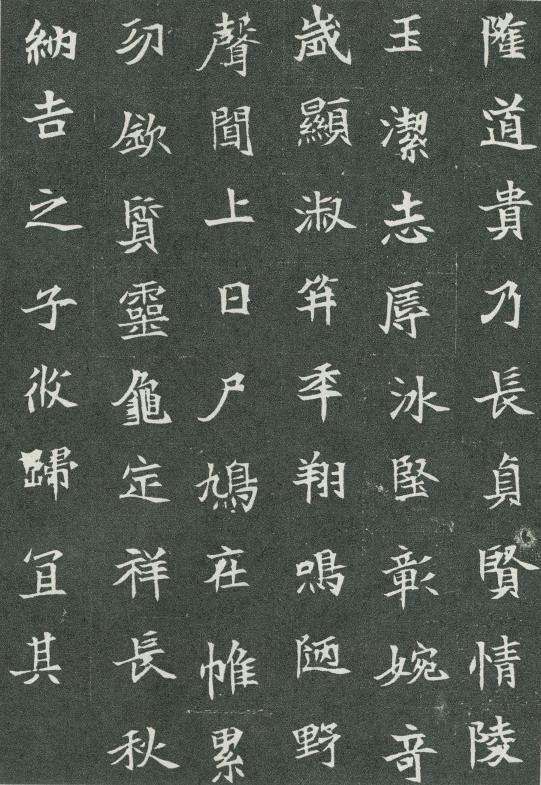 隆道貴乃長貞賢情陵
玉潔志厚冰堅彰婉奇
歲顯淑笄年翔鳴陋野
聲聞上日尸鳩在帷累
欽質靈龜定祥長秋
納吉之子攸歸宜其